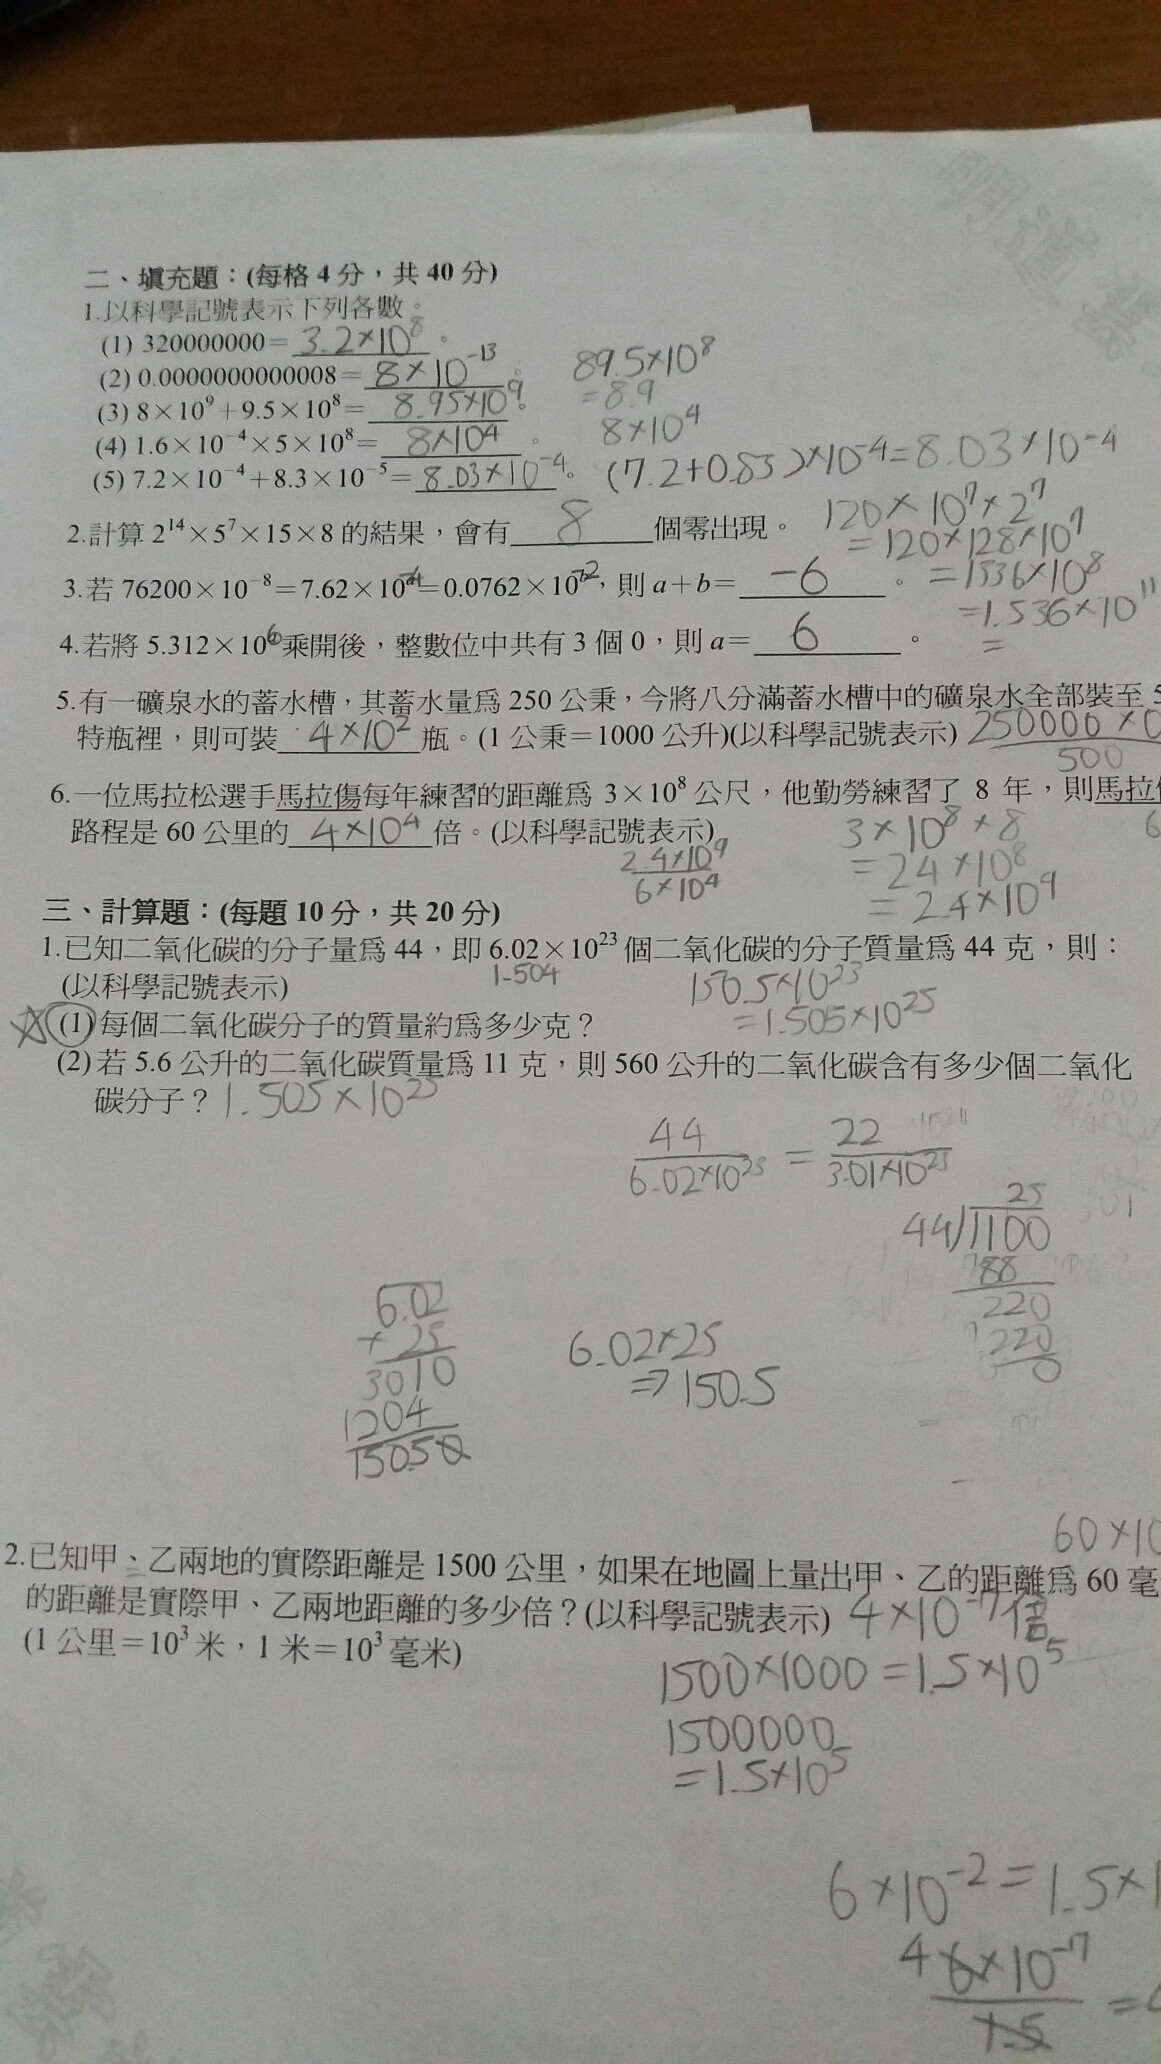 二、填充題：(每格 4 分，共 40 分)
1.以科學記號表示下列各數。
(1) 320000000＝ 3.2×10⁸ 。
(2) 0.0000000000008＝ 8×10⁻¹³ 。 89.5×10⁸
(3) 8×10⁹＋9.5×10⁸＝ 8.95×10⁹ 。 =8.9
(4) 1.6×10⁻⁴×5×10⁸＝ 8×10⁴ 。 8×10⁴
(5) 7.2×10⁻⁴＋8.3×10⁻⁵＝ 8.03×10⁻⁴ 。 (7.2+0.83)×10⁻⁴=8.03×10⁻⁴
2.計算 2¹⁴×5⁷×15×8 的結果，會有 8 個零出現。 120×10⁷×2⁷
=120×128×10⁷
3.若 76200×10⁻⁸＝7.62×10⁻⁴＝0.0762×10⁻²，則 a＋b＝ -6 。 =1536×10⁸
=1.536×10¹¹
4.若將 5.312×10⁶ 乘開後，整數位中共有 3 個 0，則 a＝ 6 。 =
5.有一礦泉水的蓄水槽，其蓄水量爲 250 公秉，今將八分滿蓄水槽中的礦泉水全部裝至 5
特瓶裡，則可裝 4×10² 瓶。(1 公秉＝1000 公升)(以科學記號表示) 250000×0
500
6.一位馬拉松選手馬拉傷每年練習的距離爲 3×10⁸ 公尺，他勤勞練習了 8 年，則馬拉
路程是 60 公里的 4×10⁴ 倍。(以科學記號表示) 3×10⁸×8
2.4×10⁹ =24×10⁸
6×10⁴ =2.4×10⁹
三、計算題：(每題 10 分，共 20 分)
1.已知二氧化碳的分子量爲 44，即 6.02×10²³ 個二氧化碳的分子質量爲 44 克，則：
(以科學記號表示) 1.504 150.5×10²³
(1) 每個二氧化碳分子的質量約爲多少克？ =1.505×10²⁵
(2) 若 5.6 公升的二氧化碳質量爲 11 克，則 560 公升的二氧化碳含有多少個二氧化
碳分子？ 1.505×10²⁵
44 = 22
6.02×10²³ 3.01×10²³
25
44)1100
88
220
220
0
6.02
×25
3010
1204
150.50
6.02×25
⇒150.5
60×10
2.已知甲、乙兩地的實際距離是 1500 公里，如果在地圖上量出甲、乙的距離爲 60 毫
的距離是實際甲、乙兩地距離的多少倍？(以科學記號表示) 4×10⁻⁷倍
(1 公里＝10³ 米，1 米＝10³ 毫米) 1500×1000=1.5×10⁵
1500000
=1.5×10⁵
6×10⁻²=1.5×1
4 6×10⁻⁷ =
1.5